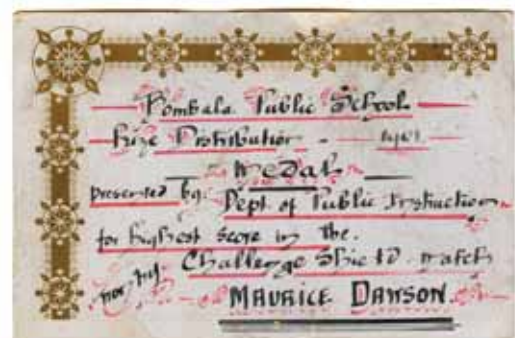 Bombala Public School
Prize Distribution - 1901
Medal
presented by. Dept. of Public Instruction
for highest score in the.
Challenge Shield match
MAURICE DAWSON.